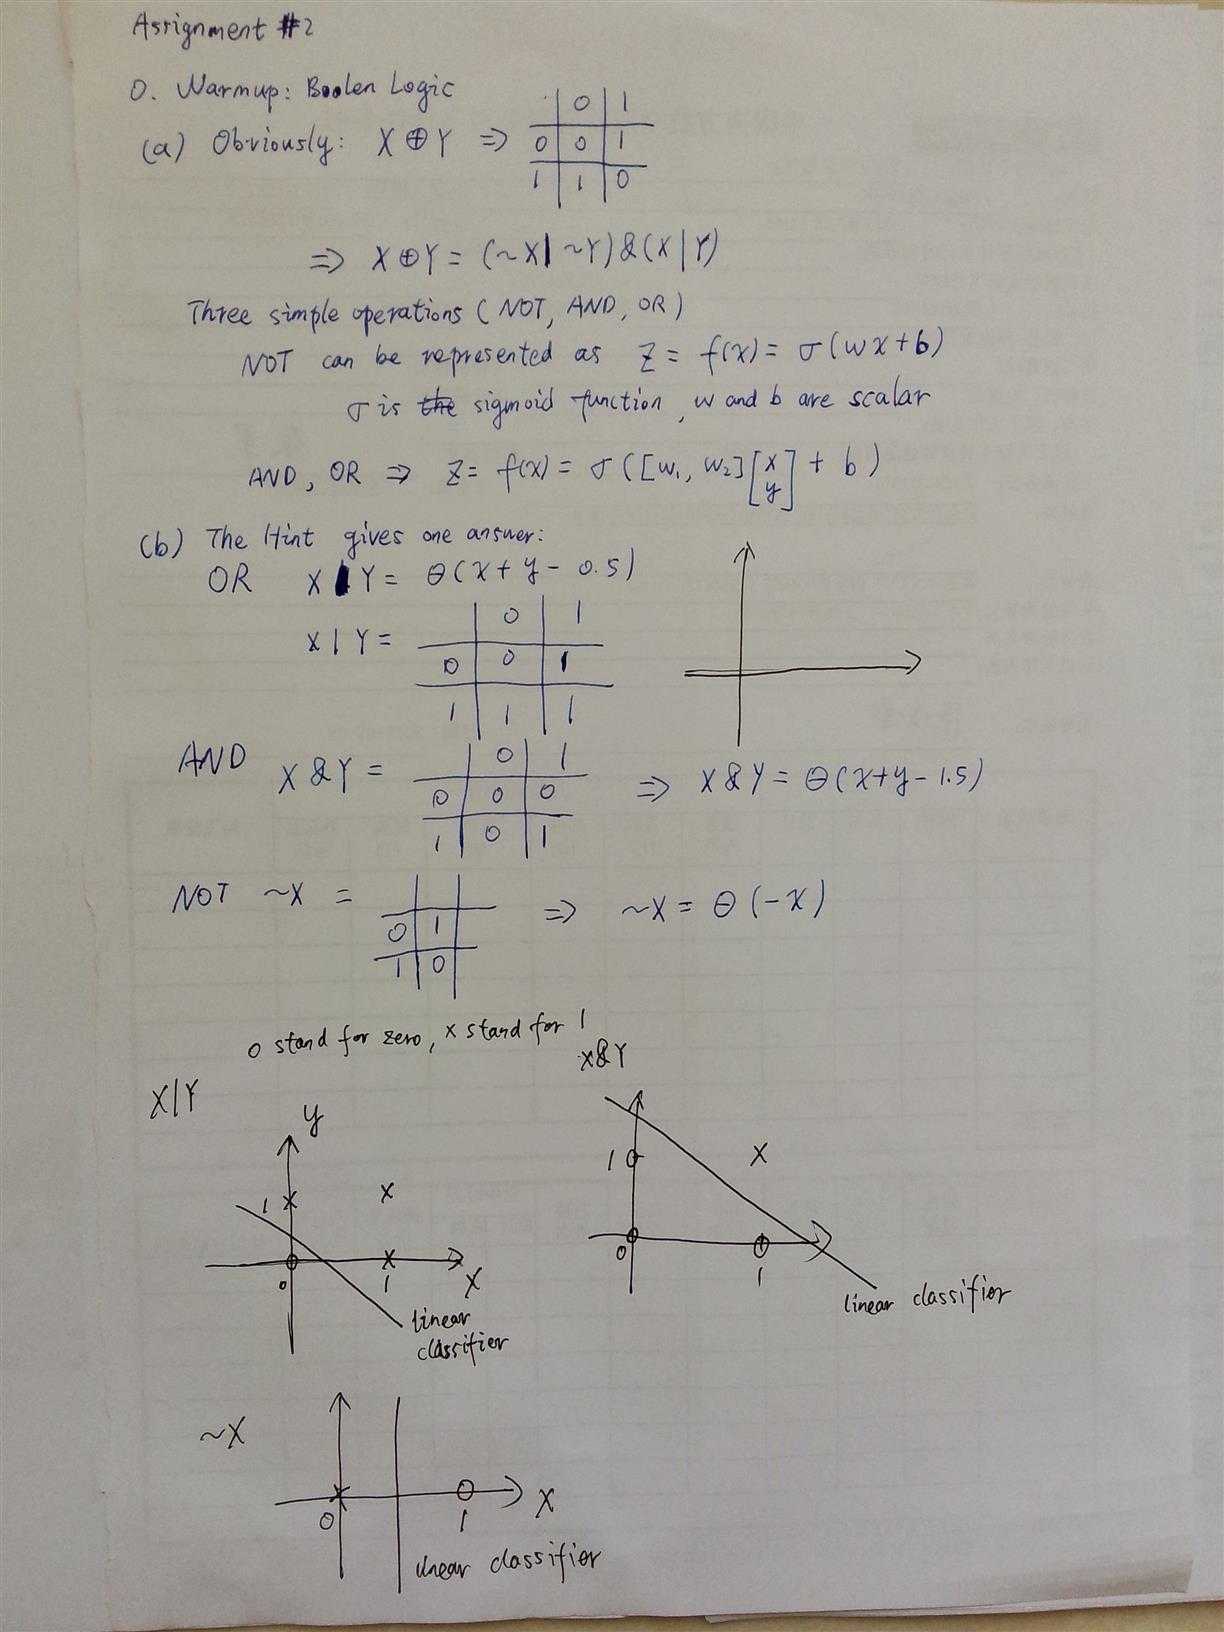 Assignment #2
0. Warmup: Boolen Logic
(a) Obviously: X ⊕ Y ⇒
0 1
0 0 1
1 1 0
⇒ X⊕Y = (~X | ~Y) & (X | Y)
Three simple operations (NOT, AND, OR)
NOT can be represented as Z = f(x) = σ(wx+b)
σ is the sigmoid function, w and b are scalar
AND, OR ⇒ Z = f(x) = σ([w₁, w₂][x y] + b)
(b) The Hint gives one answer:
OR X | Y = θ(x+y - 0.5)
X | Y =
0 1
0 0 1
1 1 1
AND X & Y =
0 1
0 0 0
1 0 1
⇒ X & Y = θ(x+y-1.5)
NOT ~X =
0 1
1 0
⇒ ~X = θ(-x)
o stand for zero, x stand for 1
X|Y
y
1
0
1
X
linear
classifier
X&Y
1
0
1
linear classifier
~X
0
1
X
linear classifier